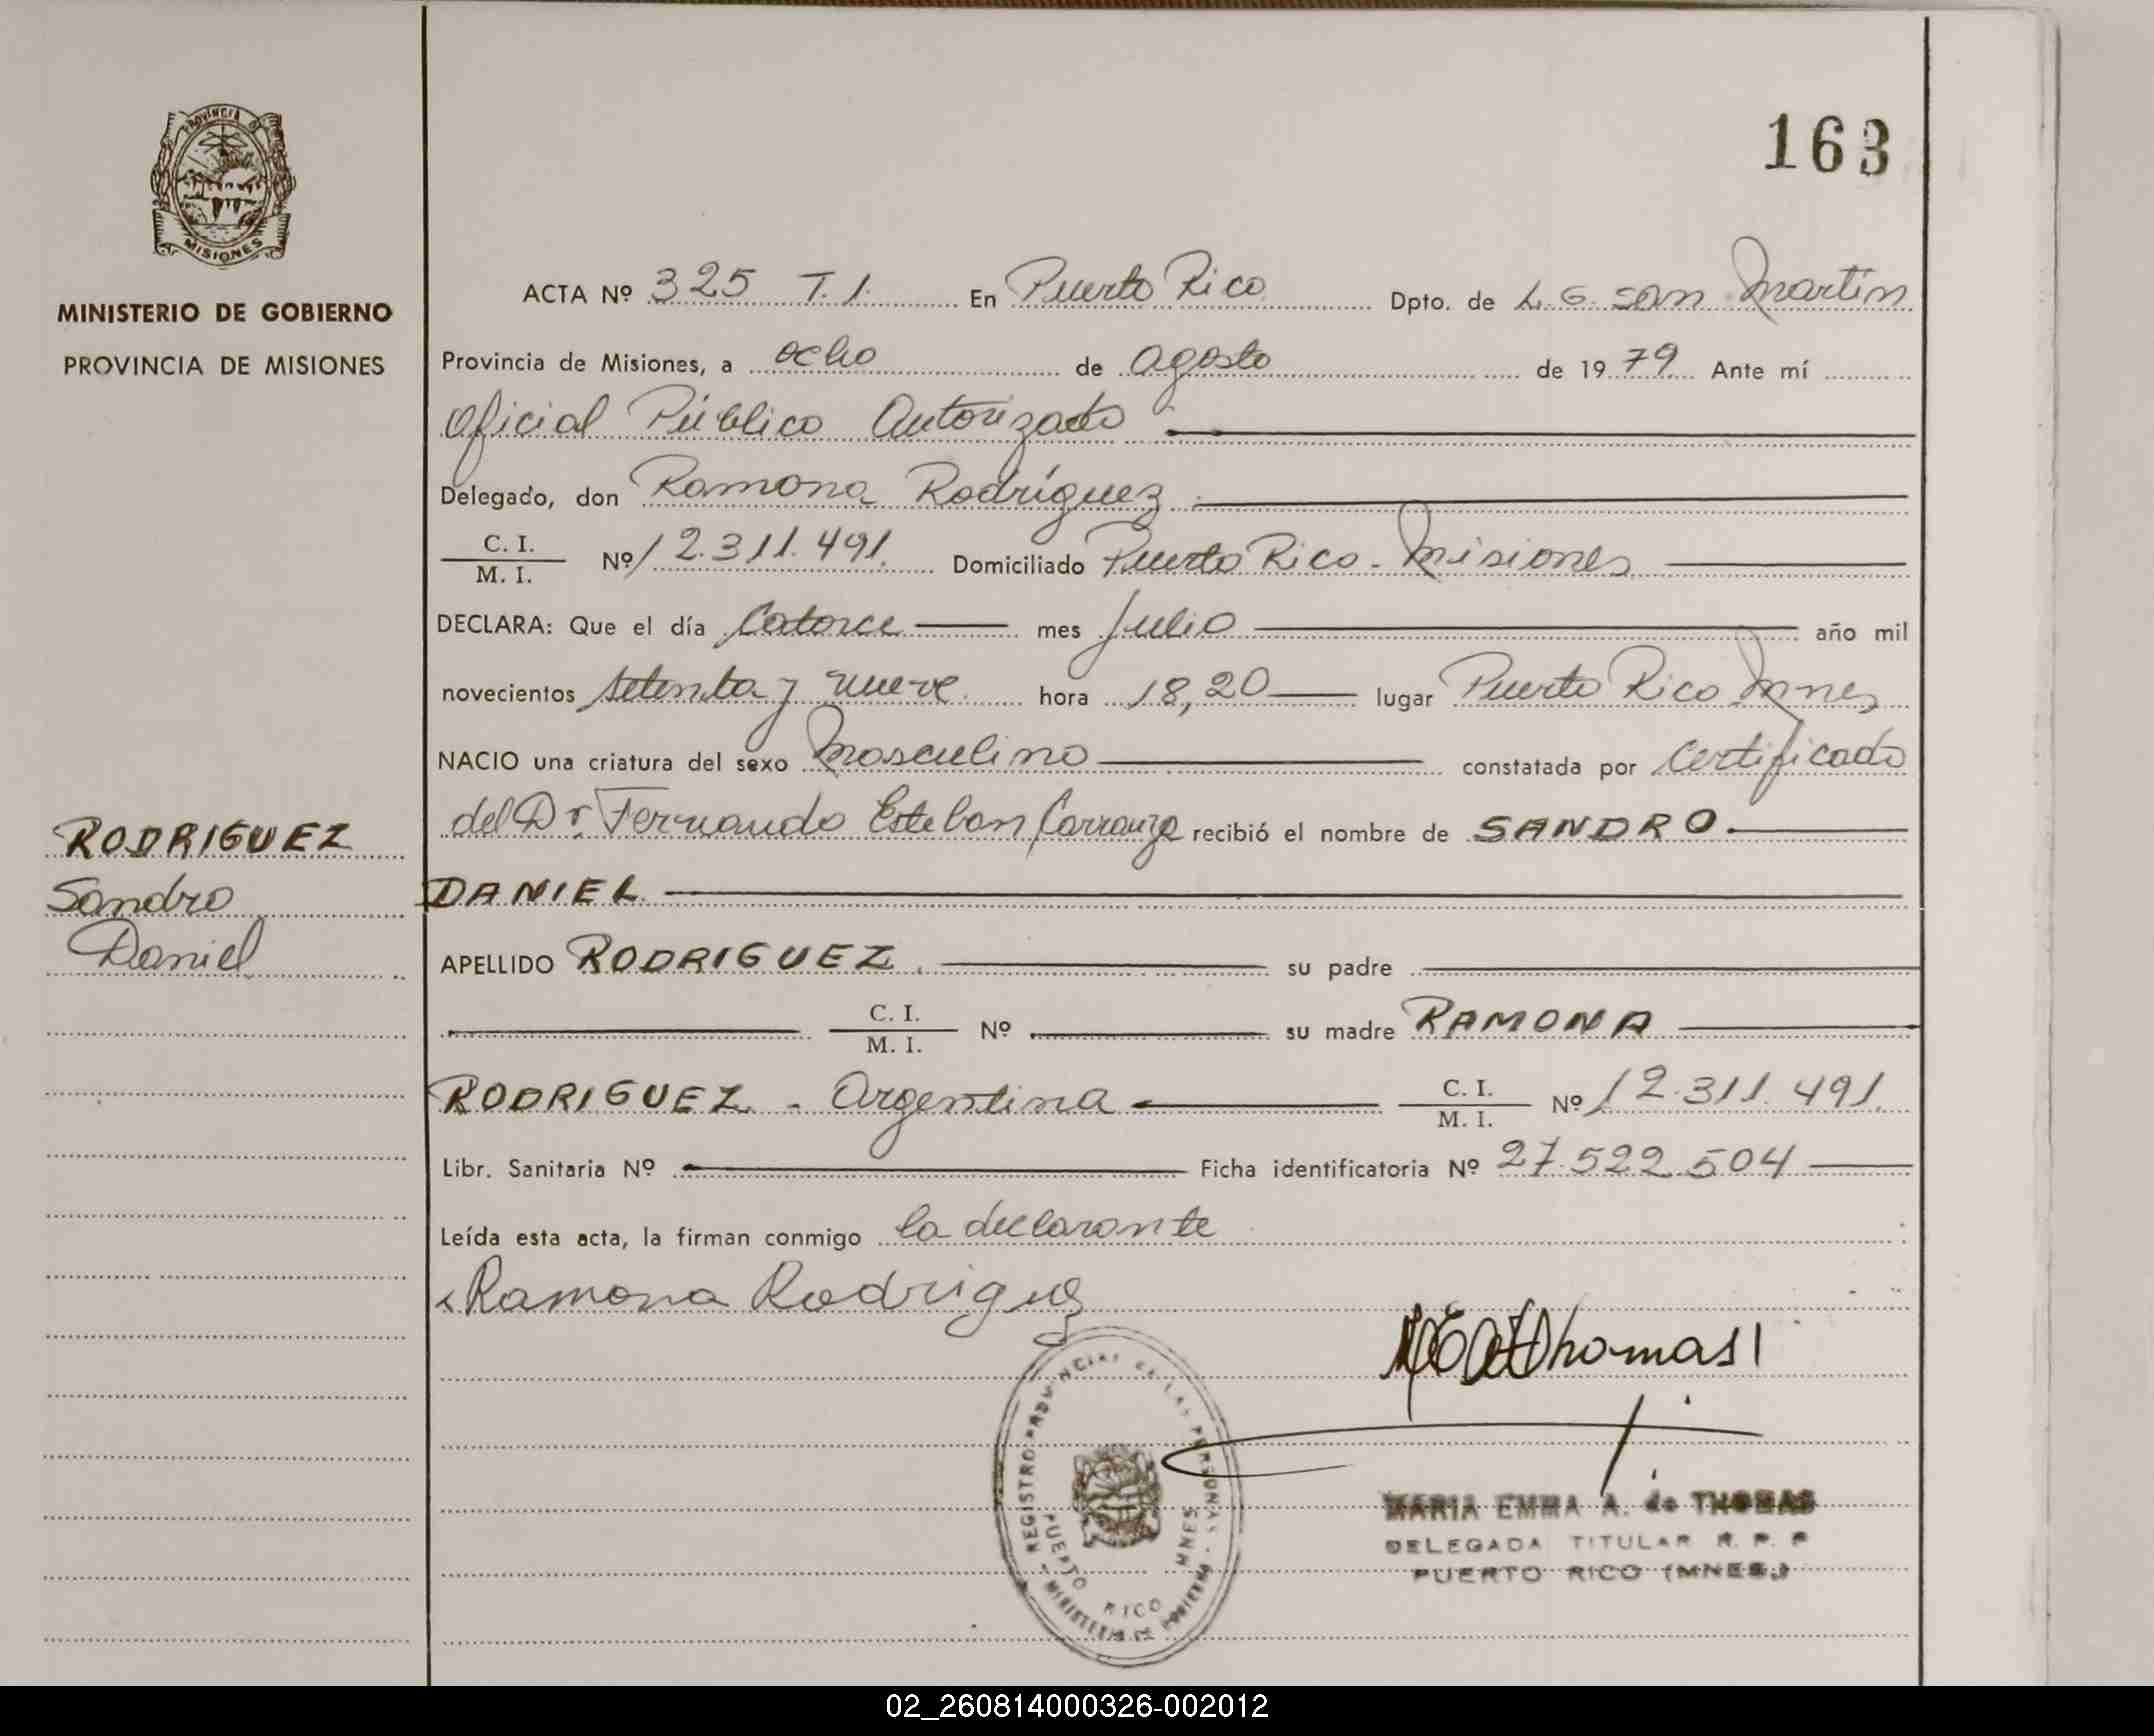 163
PROVINCIA DE
MISIONES
MINISTERIO DE GOBIERNO
PROVINCIA DE MISIONES
ACTA Nº 325 T.1. En Puerto Rico Dpto. de L. G. San Martín
Provincia de Misiones, a ocho de agosto de 1979 Ante mí
Oficial Público Autorizado
Delegado, don Ramona Rodríguez
C. I.
M. I. Nº 12.311.491. Domiciliado Puerto Rico - Misiones
DECLARA: Que el día Catorce mes Julio año mil
novecientos setenta y nueve hora 18,20 lugar Puerto Rico Mnes
NACIO una criatura del sexo Masculino constatada por Certificado
del Dr. Fernando Esteban Carranza recibió el nombre de SANDRO
DANIEL
RODRIGUEZ
Sandro
Daniel
APELLIDO RODRIGUEZ su padre
C. I.
M. I. Nº su madre RAMONA
RODRIGUEZ - Argentina C. I.
M. I. Nº 12.311.491.
Libr. Sanitaria Nº Ficha identificatoria Nº 27.522.504
Leída esta acta, la firman conmigo la declarante
Ramona Rodriguez
Thomas
REGISTRO PROVINCIAL DE LAS PERSONAS - MINISTERIO DE GOBIERNO -
PUERTO RICO MNES
MARIA EMMA A. de THOMAS
DELEGADA TITULAR R. P. P
PUERTO RICO (MNES.)
02_260814000326-002012